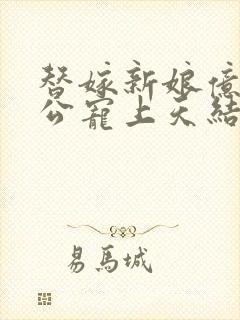 替嫁新娘億
公寵上天結
易馬城